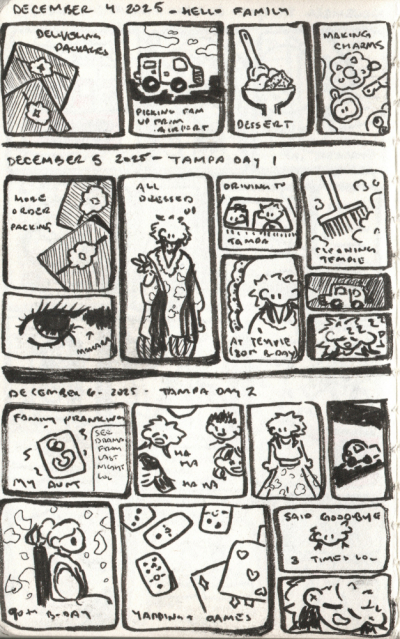 DECEMBER 4 2025 - HELLO FAMILY
DELIVERING
PACKAGES
PICKING FAM
UP FROM
AIRPORT
DESSERT
MAKING
CHARMS
DECEMBER 5 2025 - TAMPA DAY 1
MORE
ORDER
PACKING
ALL
DRESSED
UP
DRIVING TO
TAMPA
CLEANING
TEMPLE
AT TEMPLE
B-DAY
DECEMBER 6 - 2025 - TAMPA DAY 2
FAMILY PRANKING
MY AUNT
SEE
DRAMA
FROM
LAST
NIGHT
LOL
HA
HA
HA HA
SAID GOODBYE
3 TIMES LOL
90TH B-DAY
YAPPING + GAMES